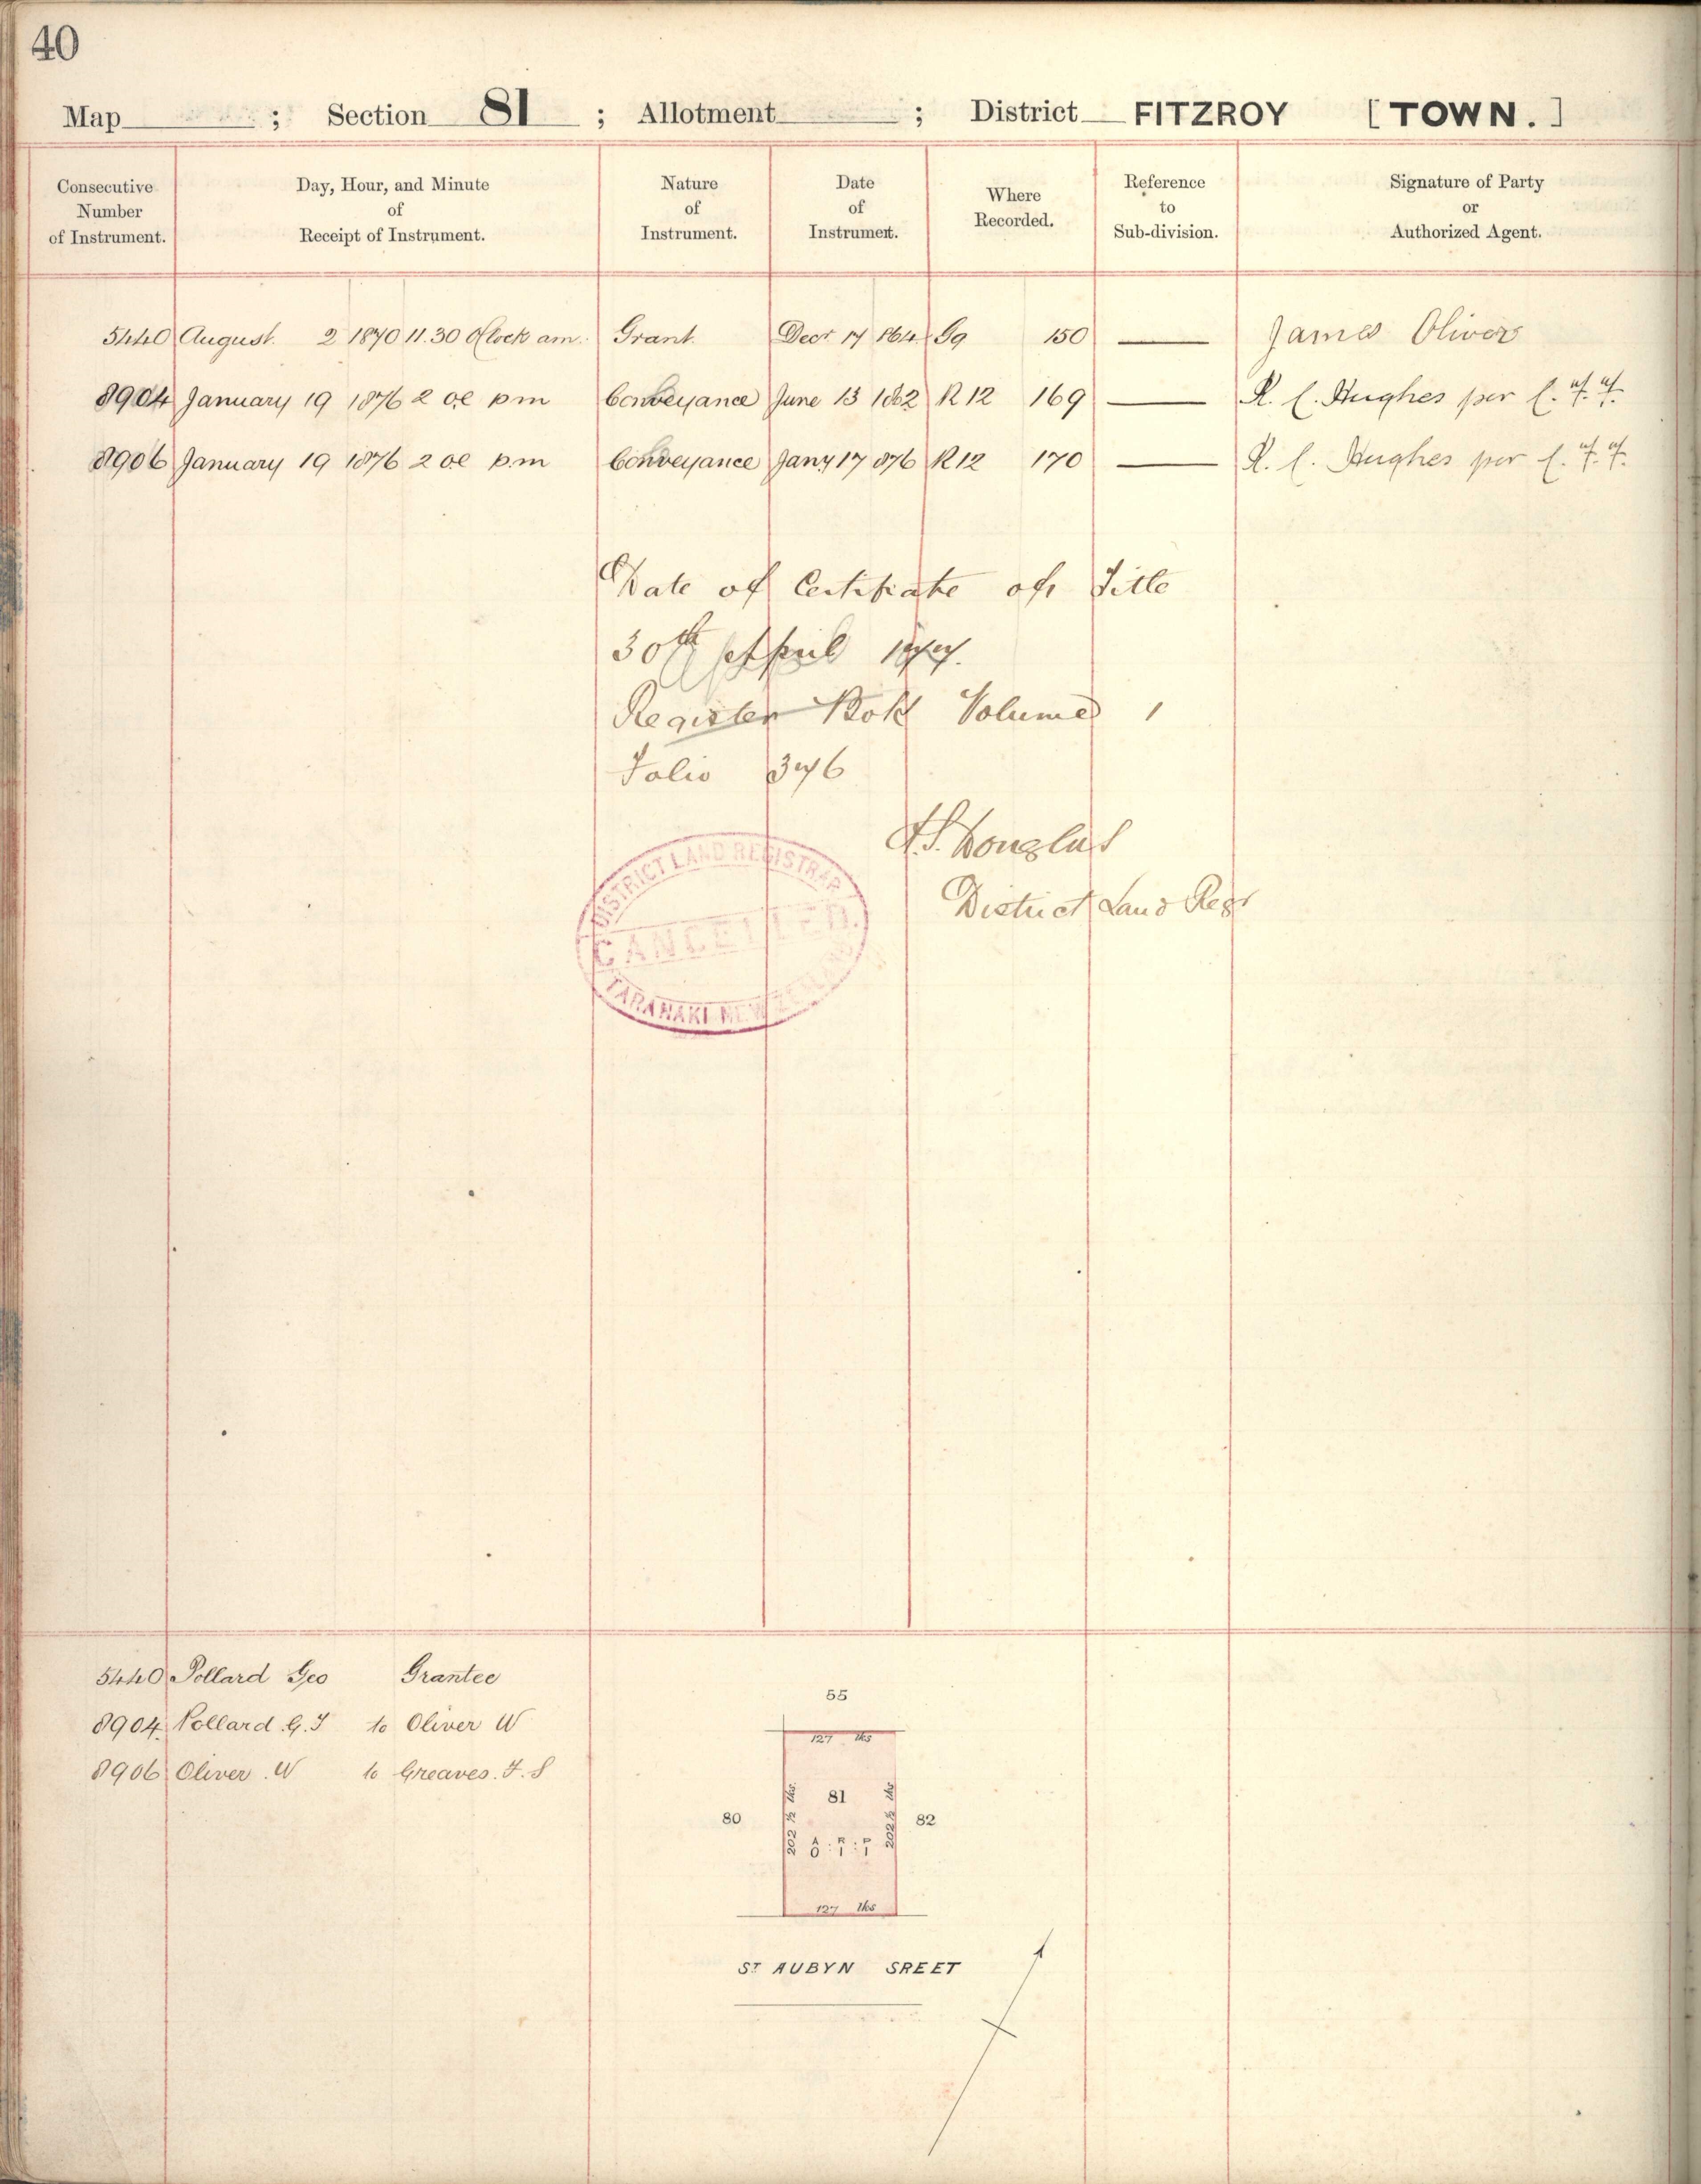 40
Map ; Section 81 ; Allotment ; District FITZROY [TOWN.]
Consecutive Number of Instrument. Day, Hour, and Minute of Receipt of Instrument. Nature of Instrument. Date of Instrument. Where Recorded. Reference to Sub-division. Signature of Party or Authorized Agent.
5440 August 2 1870 11.30 oClock am. Grant Decr 17 1864 G9 150 —— James Oliver
8904 January 19 1876 2 oc pm Conveyance June 13 1862 R 12 169 —— R. C. Hughes per
8906 January 19 1876 2 oc p.m Conveyance Jany 17 1876 R 12 170 —— R. C. Hughes per
Date of Certificate of Title
30th April 1877.
Register Book Volume 1
Folio 376
Douglas
District Land Regr
DISTRICT LAND REGISTRAR
CANCELLED.
TARANAKI NEW ZEALAND
5440 Pollard Geo Grantee
8904 Pollard G. to Oliver W
8906 Oliver . W to Greaves. F. S
55
127 lks
80 202½ lks. 81 202½ lks 82
A R P
0 : 1 : 1
127 lks
ST AUBYN SREET